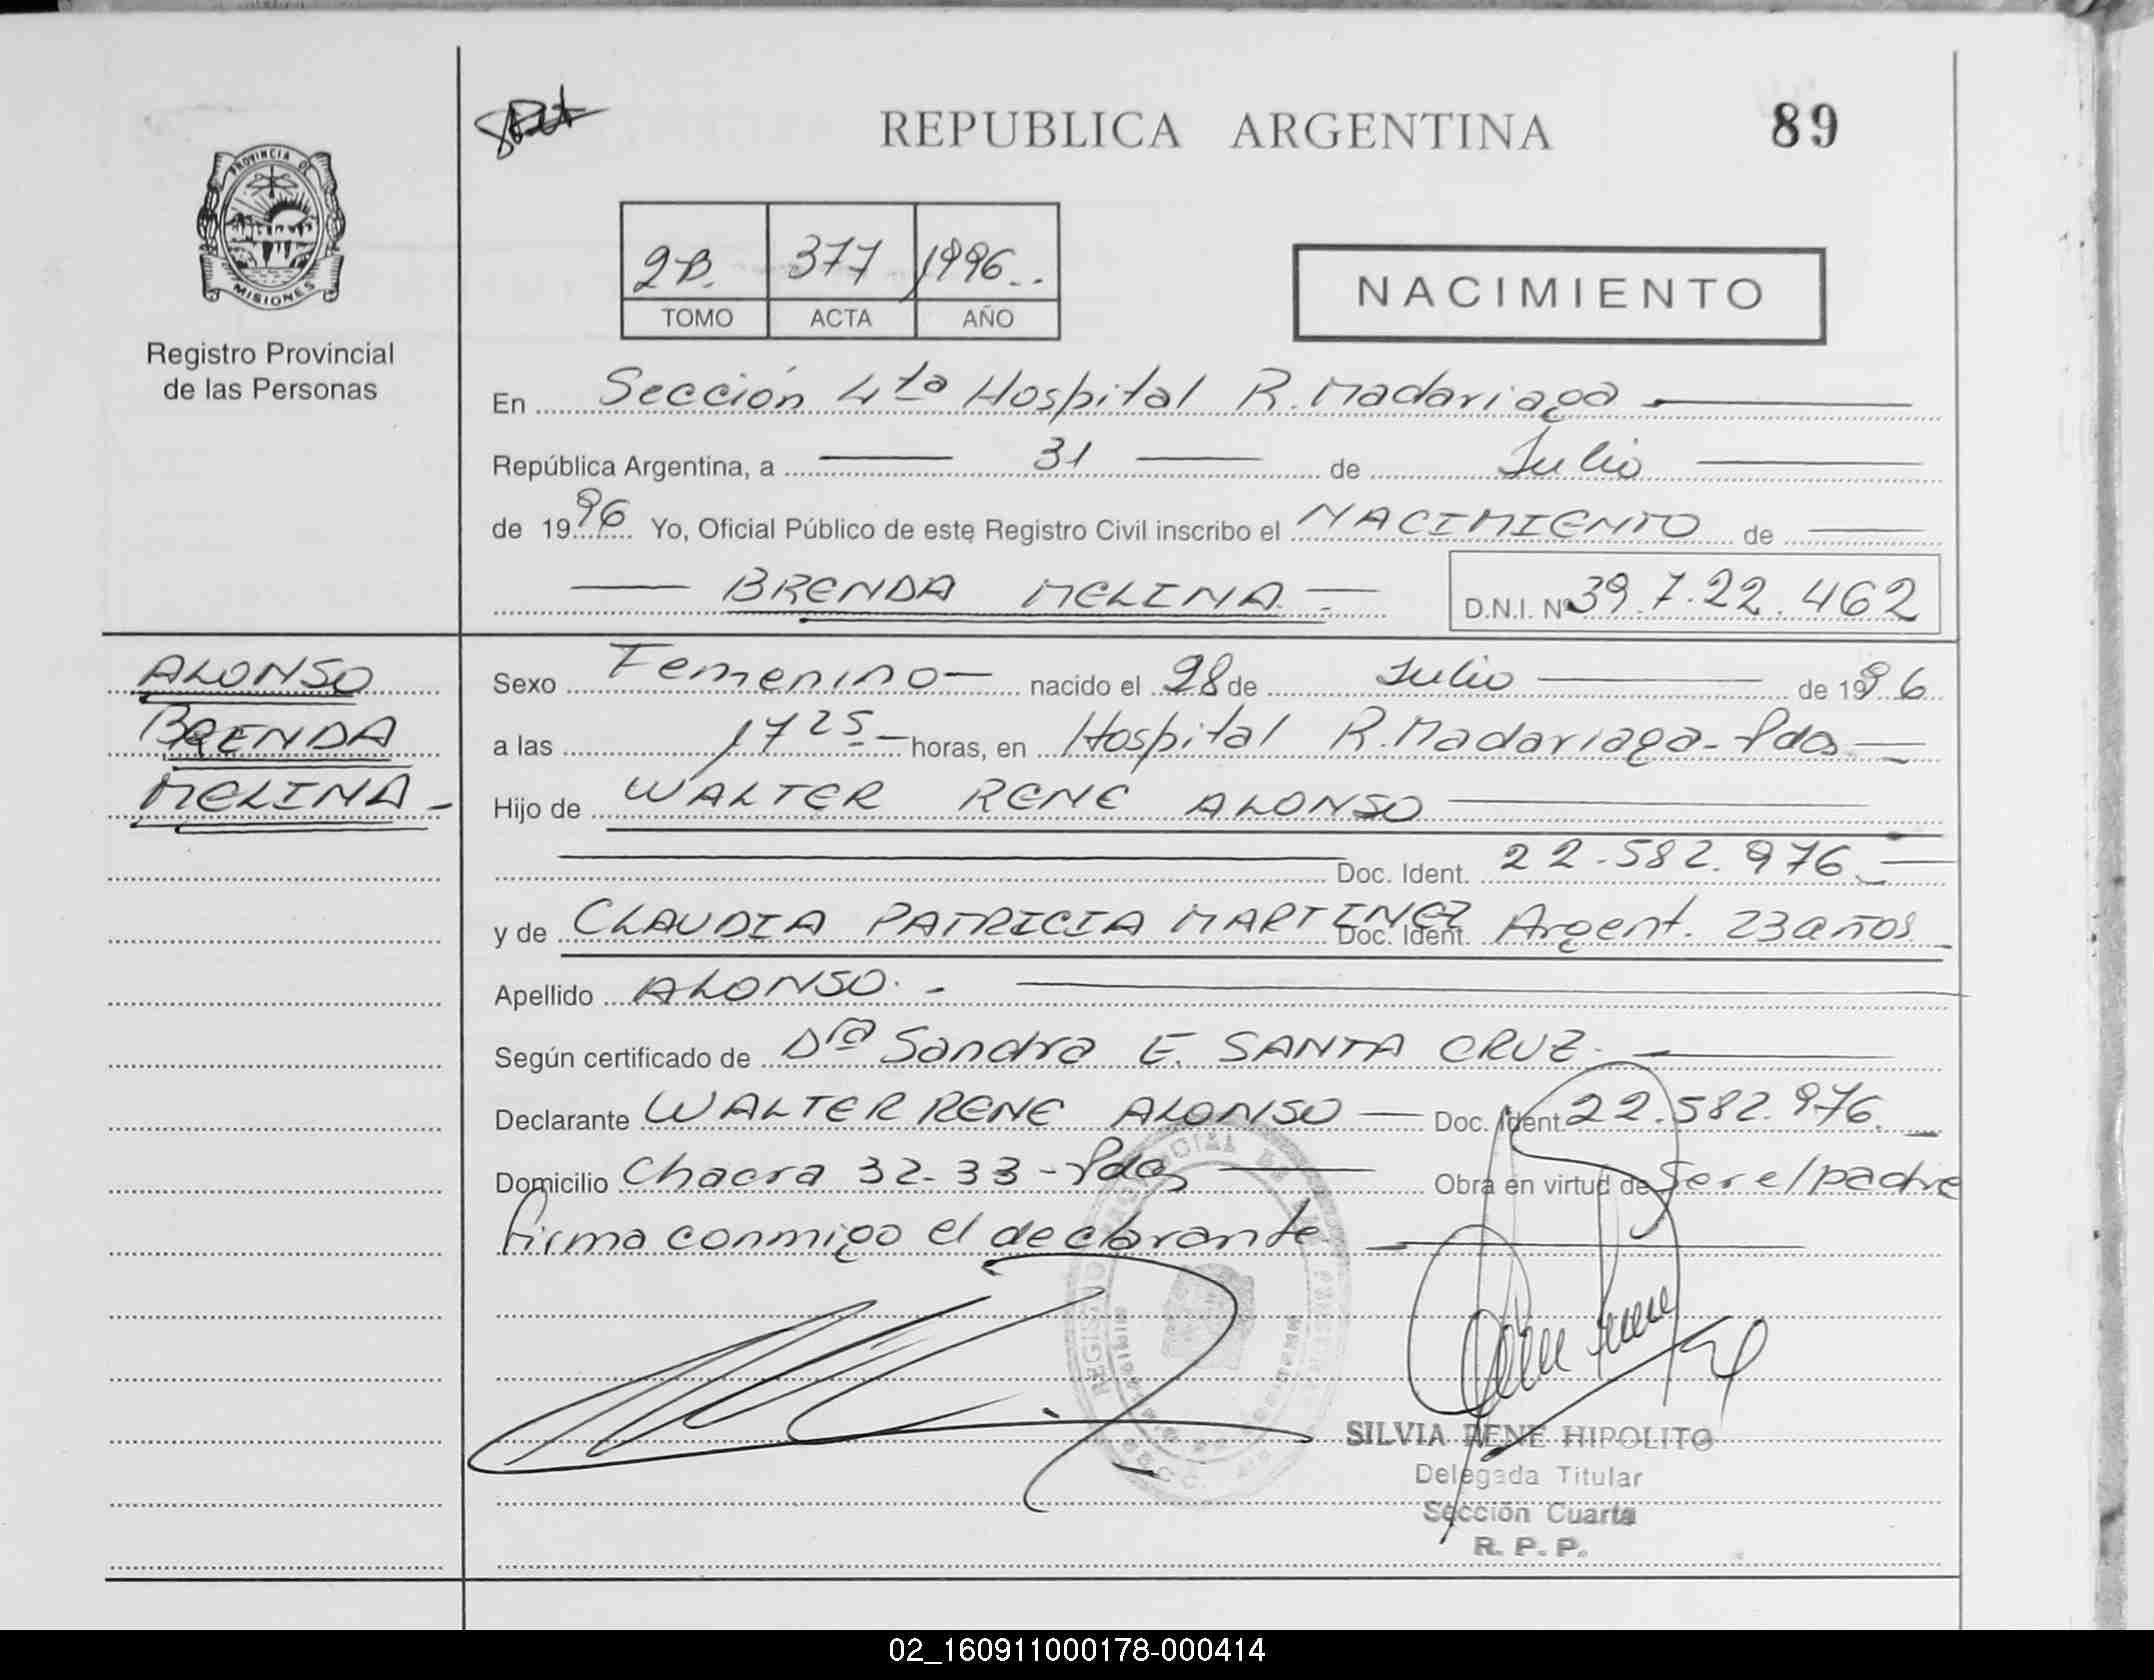 REPUBLICA ARGENTINA
89
PROVINCIA DE
MISIONES
Registro Provincial
de las Personas
2B. 377 1996..
TOMO ACTA AÑO
NACIMIENTO
En Sección 4ta Hospital R. Madariaga
República Argentina, a 31 de Julio
de 1996 Yo, Oficial Público de este Registro Civil inscribo el NACIMIENTO de
BRENDA MELINA.
D.N.I. Nº 39.722.462
ALONSO
BRENDA
MELINA
Sexo Femenino nacido el 28 de Julio de 1996
a las 17 25 horas, en Hospital R. Madariaga - Pdas
Hijo de WALTER RENE ALONSO
Doc. Ident. 22.582.976
y de CLAUDIA PATRICIA MARTINEZ Doc. Ident. Argent. 23 años
Apellido ALONSO. -
Según certificado de Dra Sandra E. SANTA CRUZ
Declarante WALTER RENE ALONSO Doc. Ident. 22.582.976.
Domicilio Chacra 32-33 - Pdas Obra en virtud de Ser el padre
firma conmigo el declarante
SILVIA RENE HIPOLITO
Delegada Titular
Sección Cuarta
R. P. P.
02_160911000178-000414